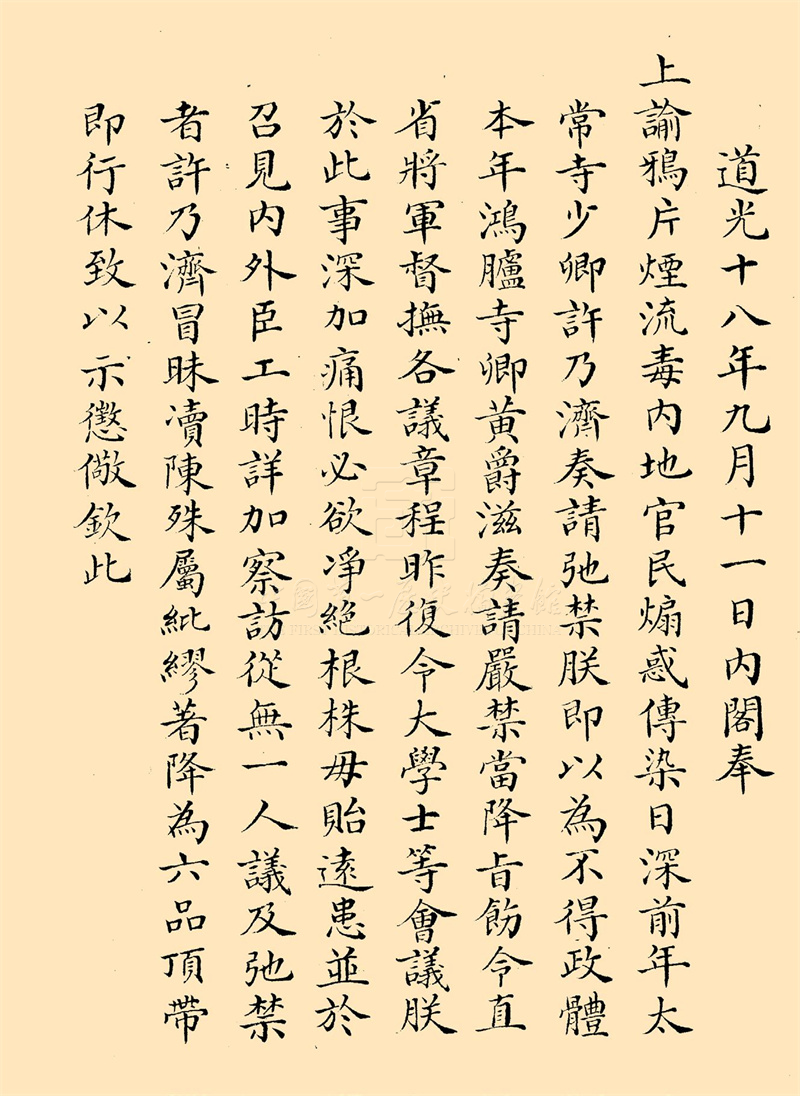 道光十八年九月十一日內閣奉
上諭鴉片煙流毒內地官民煽惑傳染日深前年太
常寺少卿許乃濟奏請弛禁朕即以為不得政體
本年鴻臚寺卿黃爵滋奏請嚴禁當降旨飭令直
省將軍督撫各議章程昨復令大學士等會議朕
於此事深加痛恨必欲凈絕根株毋貽遠患並於
召見內外臣工時詳加察訪從無一人議及弛禁
者許乃濟冒昧瀆陳殊屬紕繆著降為六品頂帶
即行休致以示懲儆欽此